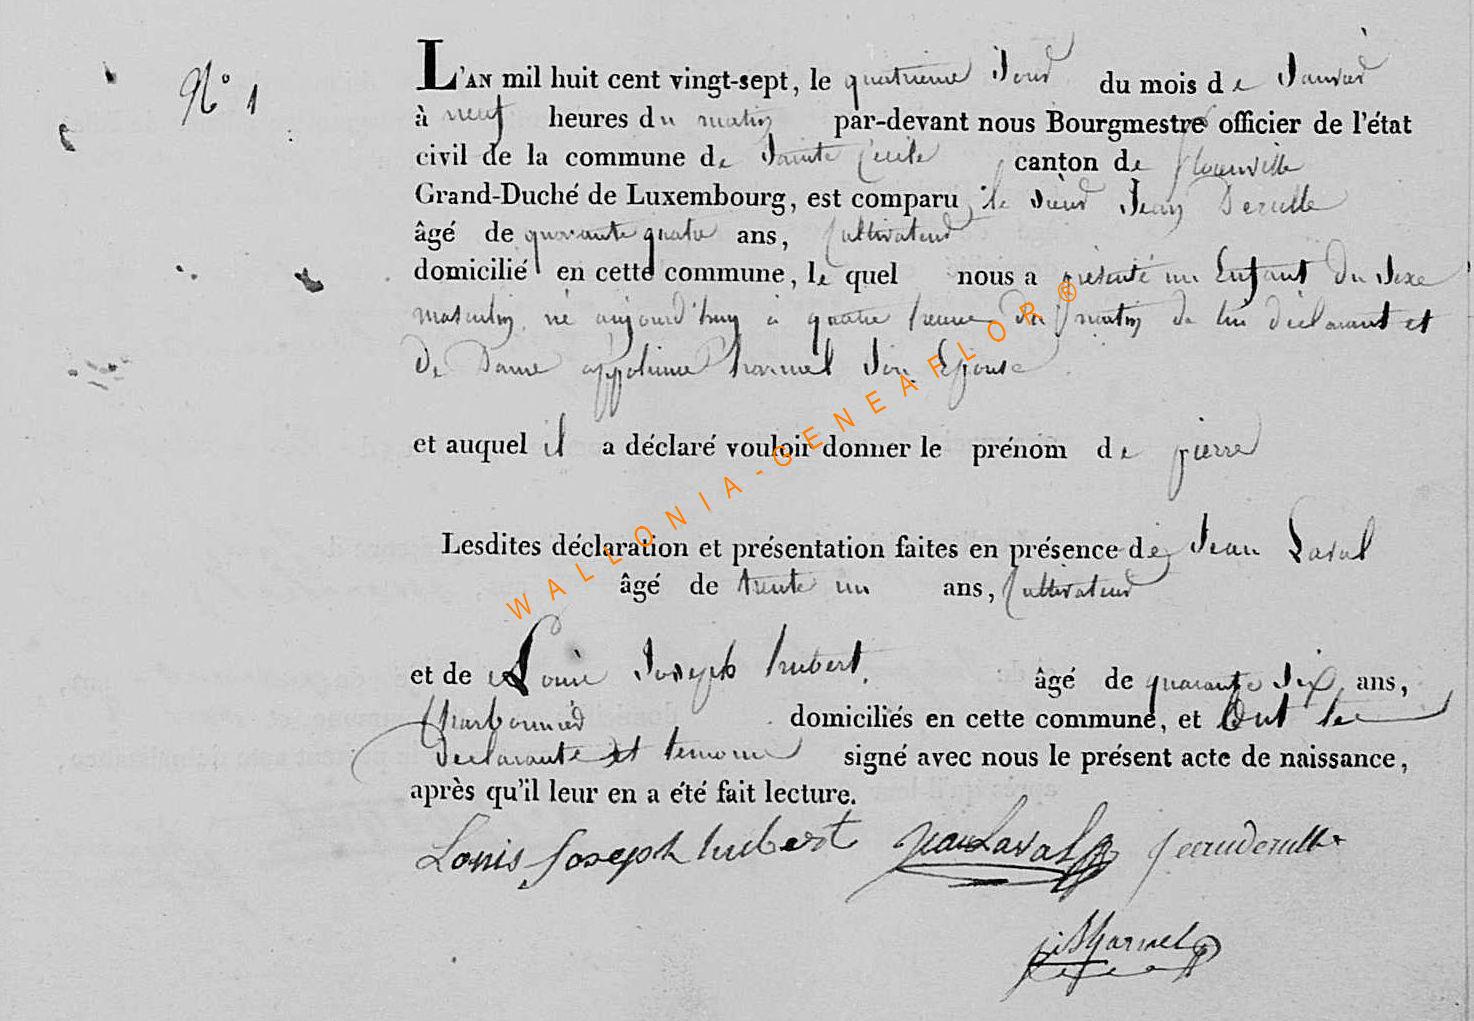 N° 1
L'AN mil huit cent vingt-sept, le quatrieme Jour du mois de Janvier
à neuf heures du matin par-devant nous Bourgmestre officier de l'état
civil de la commune de Sainte Cecile canton de florenville
Grand-Duché de Luxembourg, est comparu le Sieur Jean Derulle
âgé de quarante quatre ans, Cultivateur
domicilié en cette commune, le quel nous a présenté un Enfant du Sexe
masculin, né aujourd'huy à quatre heure du matin de lui déclarant et
De Dame appolinne harmel Son Epouse
et auquel il a déclaré vouloir donner le prénom de pierre
Lesdites déclaration et présentation faites en présence de Jean Laval
âgé de trente un ans, Cultivateur
et de Louis Joseph hubert, âgé de quarante Six ans,
Charbonnier domiciliés en cette commune, et ont les
Declarants et temoins signé avec nous le présent acte de naissance,
après qu'il leur en a été fait lecture.
Louis Joseph hubert Jean Laval Jean derulle
Harmel
WALLONIA-GENEAFLOR®